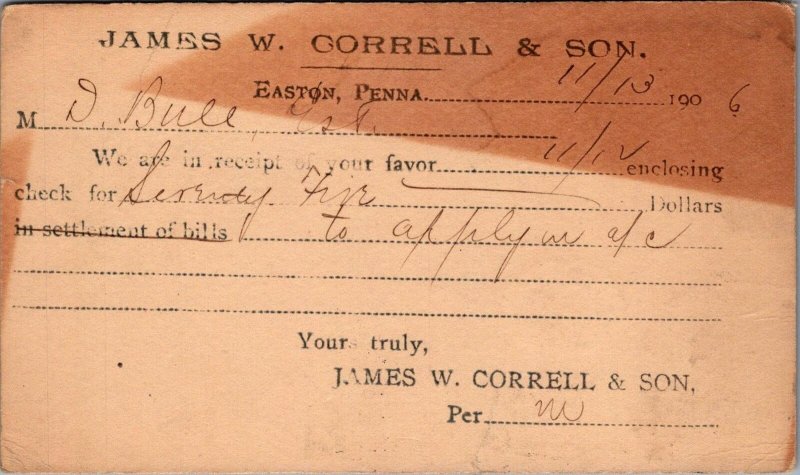 JAMES W. CORRELL & SON.
EASTON, PENNA. 11/13 1906
M D. Bull, Est.
We are in receipt of your favor 11/12 enclosing
check for Seventy Five Dollars
in settlement of bills to apply on a/c
Yours truly,
JAMES W. CORRELL & SON,
Per M